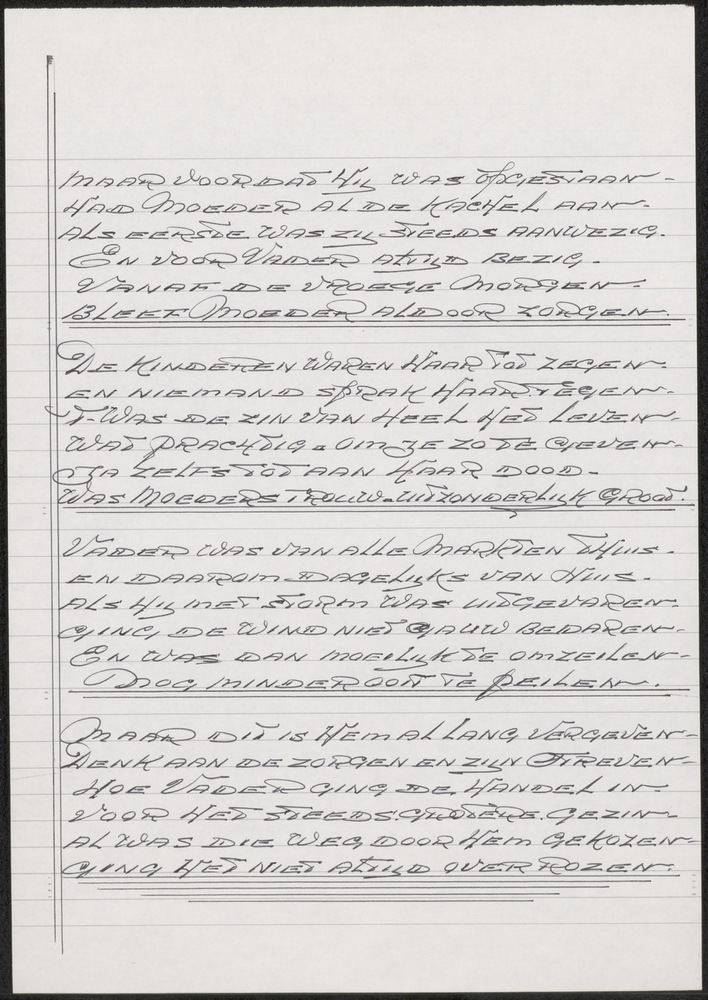 MAAR VOORDAT HIJ WAS OPGESTAAN -
HAD MOEDER AL DE KACHEL AAN -
ALS EERSTE WAS ZIJ STEEDS AANWEZIG.
EN VOOR VADER ALTIJD BEZIG.
VANAF DE VROEGE MORGEN -
BLEEF MOEDER ALDOOR ZORGEN.
DE KINDEREN WAREN HAAR TOT ZEGEN -
EN NIEMAND SPRAK HAAR TEGEN -
'T-WAS DE ZIN VAN HEEL HET LEVEN -
WAT PRACHTIG. OM JE ZO TE GEVEN -
JA ZELFS TOT AAN HAAR DOOD -
WAS MOEDERS TROUW. UITZONDERLIJK GROOT.
VADER WAS VAN ALLE MARKTEN THUIS.
EN DAAROM DAGELIJKS VAN HUIS.
ALS HIJ MET STORM WAS UITGEVAREN -
GING DE WIND NIET GAUW BEDAREN -
EN WAS DAN MOEILIJK TE OMZEILEN -
NOG MINDER OOIT TE PEILEN.
MAAR DIT IS HEM AL LANG VERGEVEN -
DENK AAN DE ZORGEN EN ZIJN STREVEN -
HOE VADER GING DE HANDEL IN -
VOOR HET STEEDS. GROTERE. GEZIN -
AL WAS DIE WEG DOOR HEM GEKOZEN -
GING HET NIET ALTIJD OVER ROZEN.